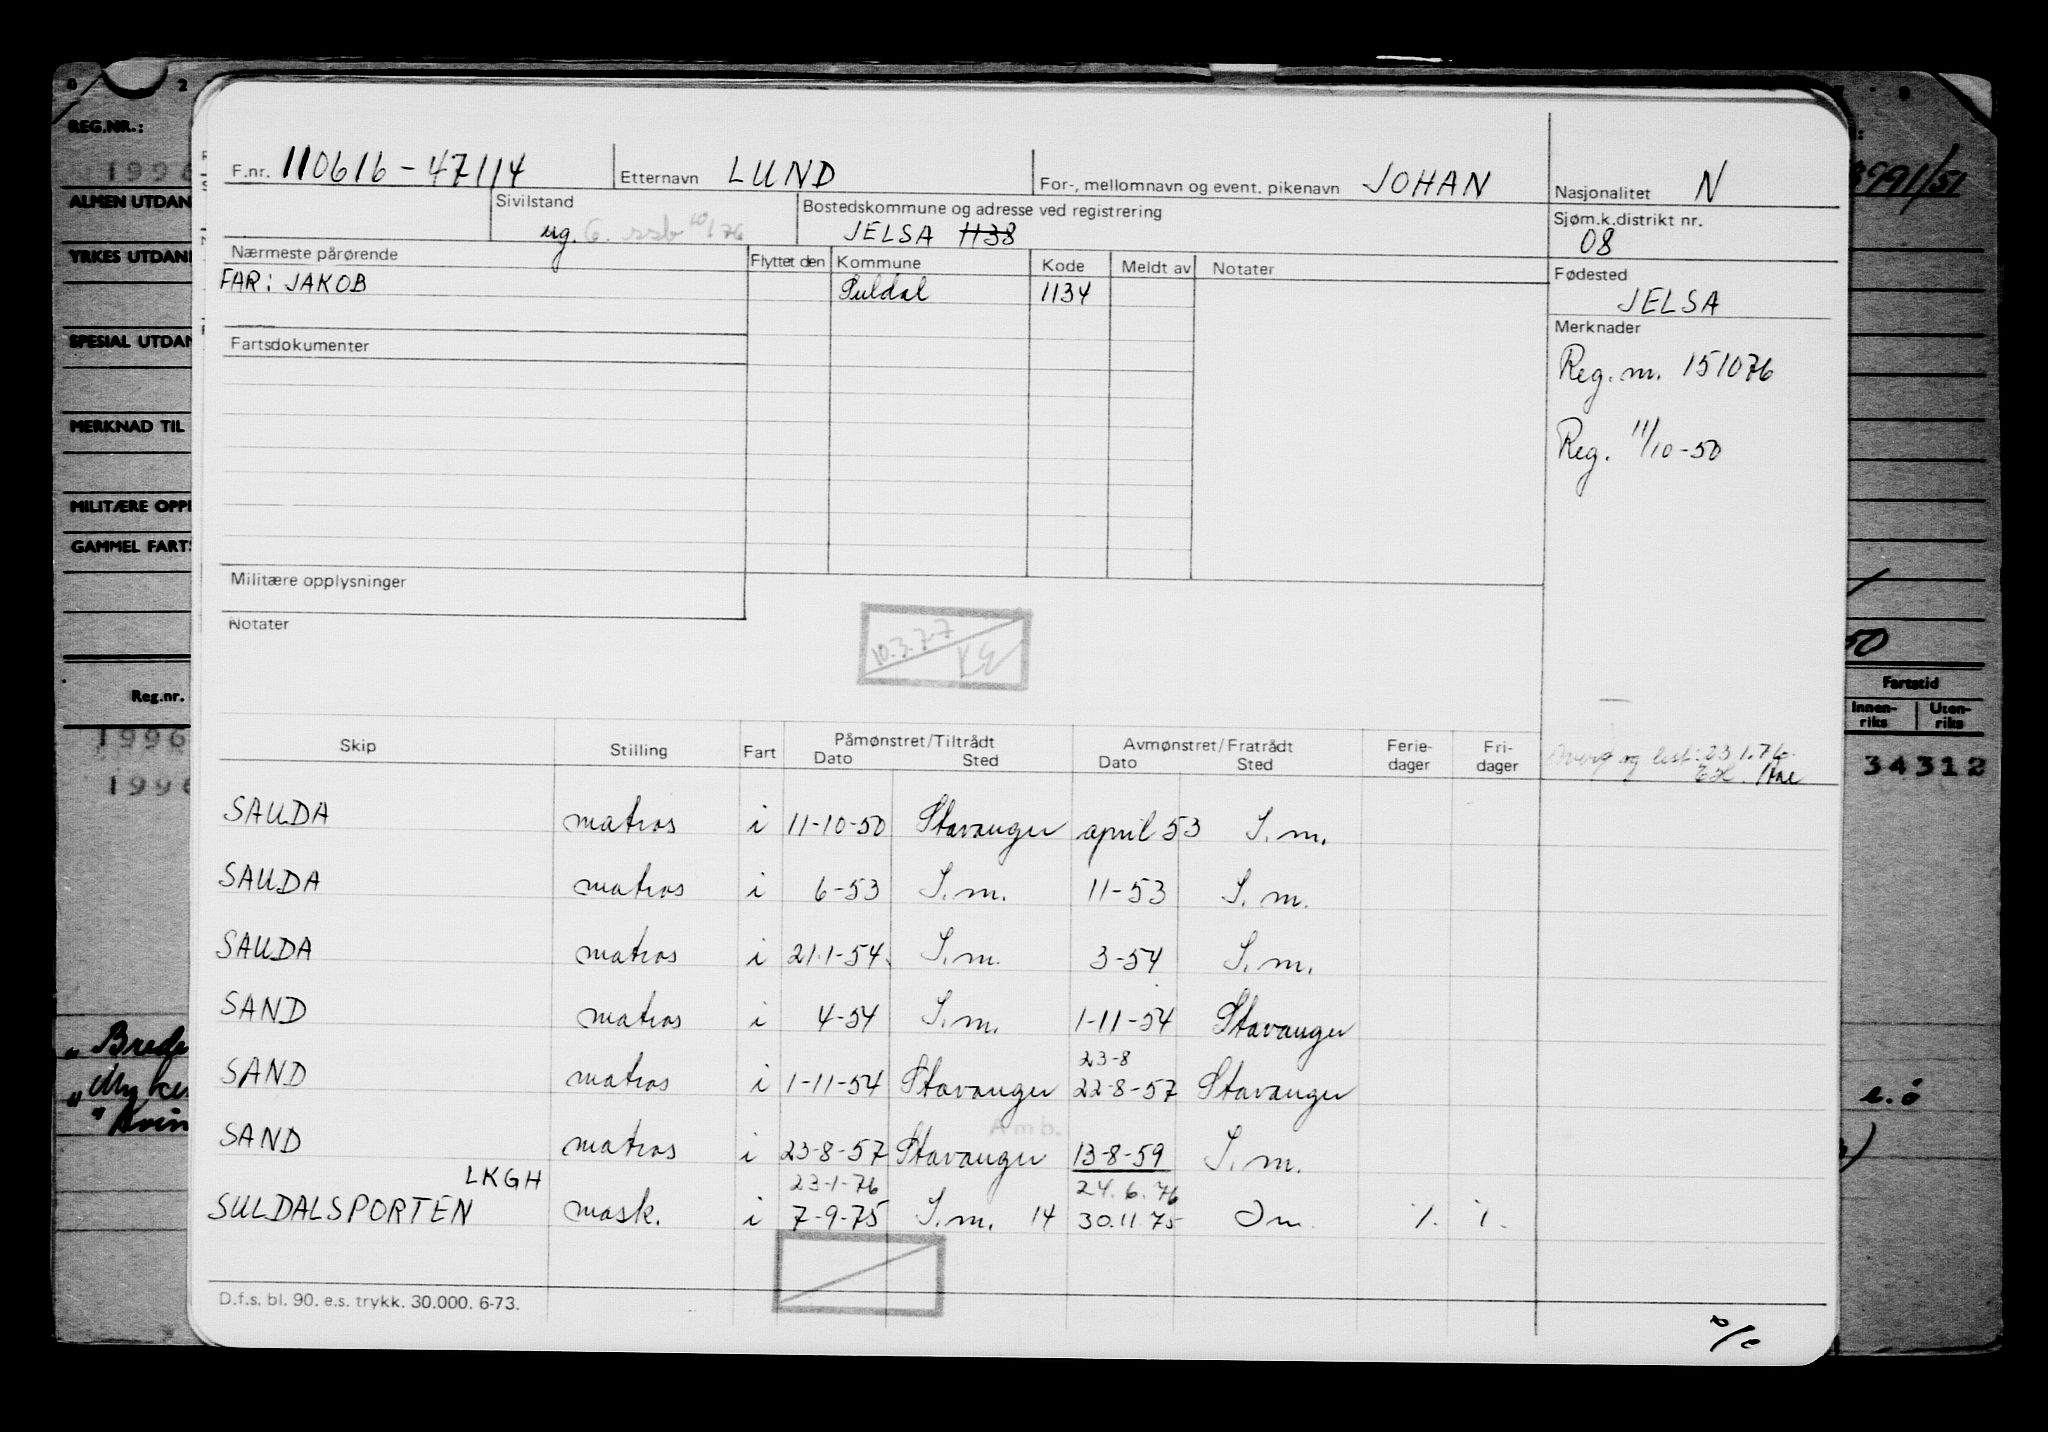 REG.NR.:
F.nr. 110616-47114 Etternavn LUND For-, mellomnavn og event. pikenavn JOHAN Nasjonalitet N
Sivilstand ug. Bostedskommune og adresse ved registrering JELSA 1138 Sjøm.k.distrikt nr. 08
Nærmeste pårørende Flyttet den Kommune Kode Meldt av Notater Fødested
FAR: JAKOB Suldal 1134 JELSA
Fartsdokumenter Merknader
Reg. m. 151076
Reg. 11/10-50
Militære opplysninger
Notater
10.3.77
Skip Stilling Fart Påmønstret/Tiltrådt Avmønstret/Fratrådt Ferie- Fri-
Dato Sted Dato Sted dager dager
SAUDA matros i 11-10-50 Stavanger april 53 S.m.
SAUDA matros i 6-53 S.m. 11-53 S.m.
SAUDA matros i 21.1-54. S.m. 3-54 S.m.
SAND matros i 4-54 S.m. 1-11-54 Stavanger
23-8
SAND matros i 1-11-54 Stavanger 22-8-57 Stavanger
Amb.
SAND matros i 23-8-57 Stavanger 13-8-59 S.m.
LKGH 23-1-76 24.6.76
SULDALSPORTEN mask. i 7-9-75 S.m. 14 30.11.75
D.f.s. bl. 90. e.s. trykk. 30.000. 6-73.
ALMEN UTDAN
YRKES UTDAN
SPESIAL UTDAN
MERKNAD TIL
MILITÆRE OPPL
GAMMEL FARTS
Reg.nr.
1996
Fartstid
Innen- Uten-
riks riks
34312